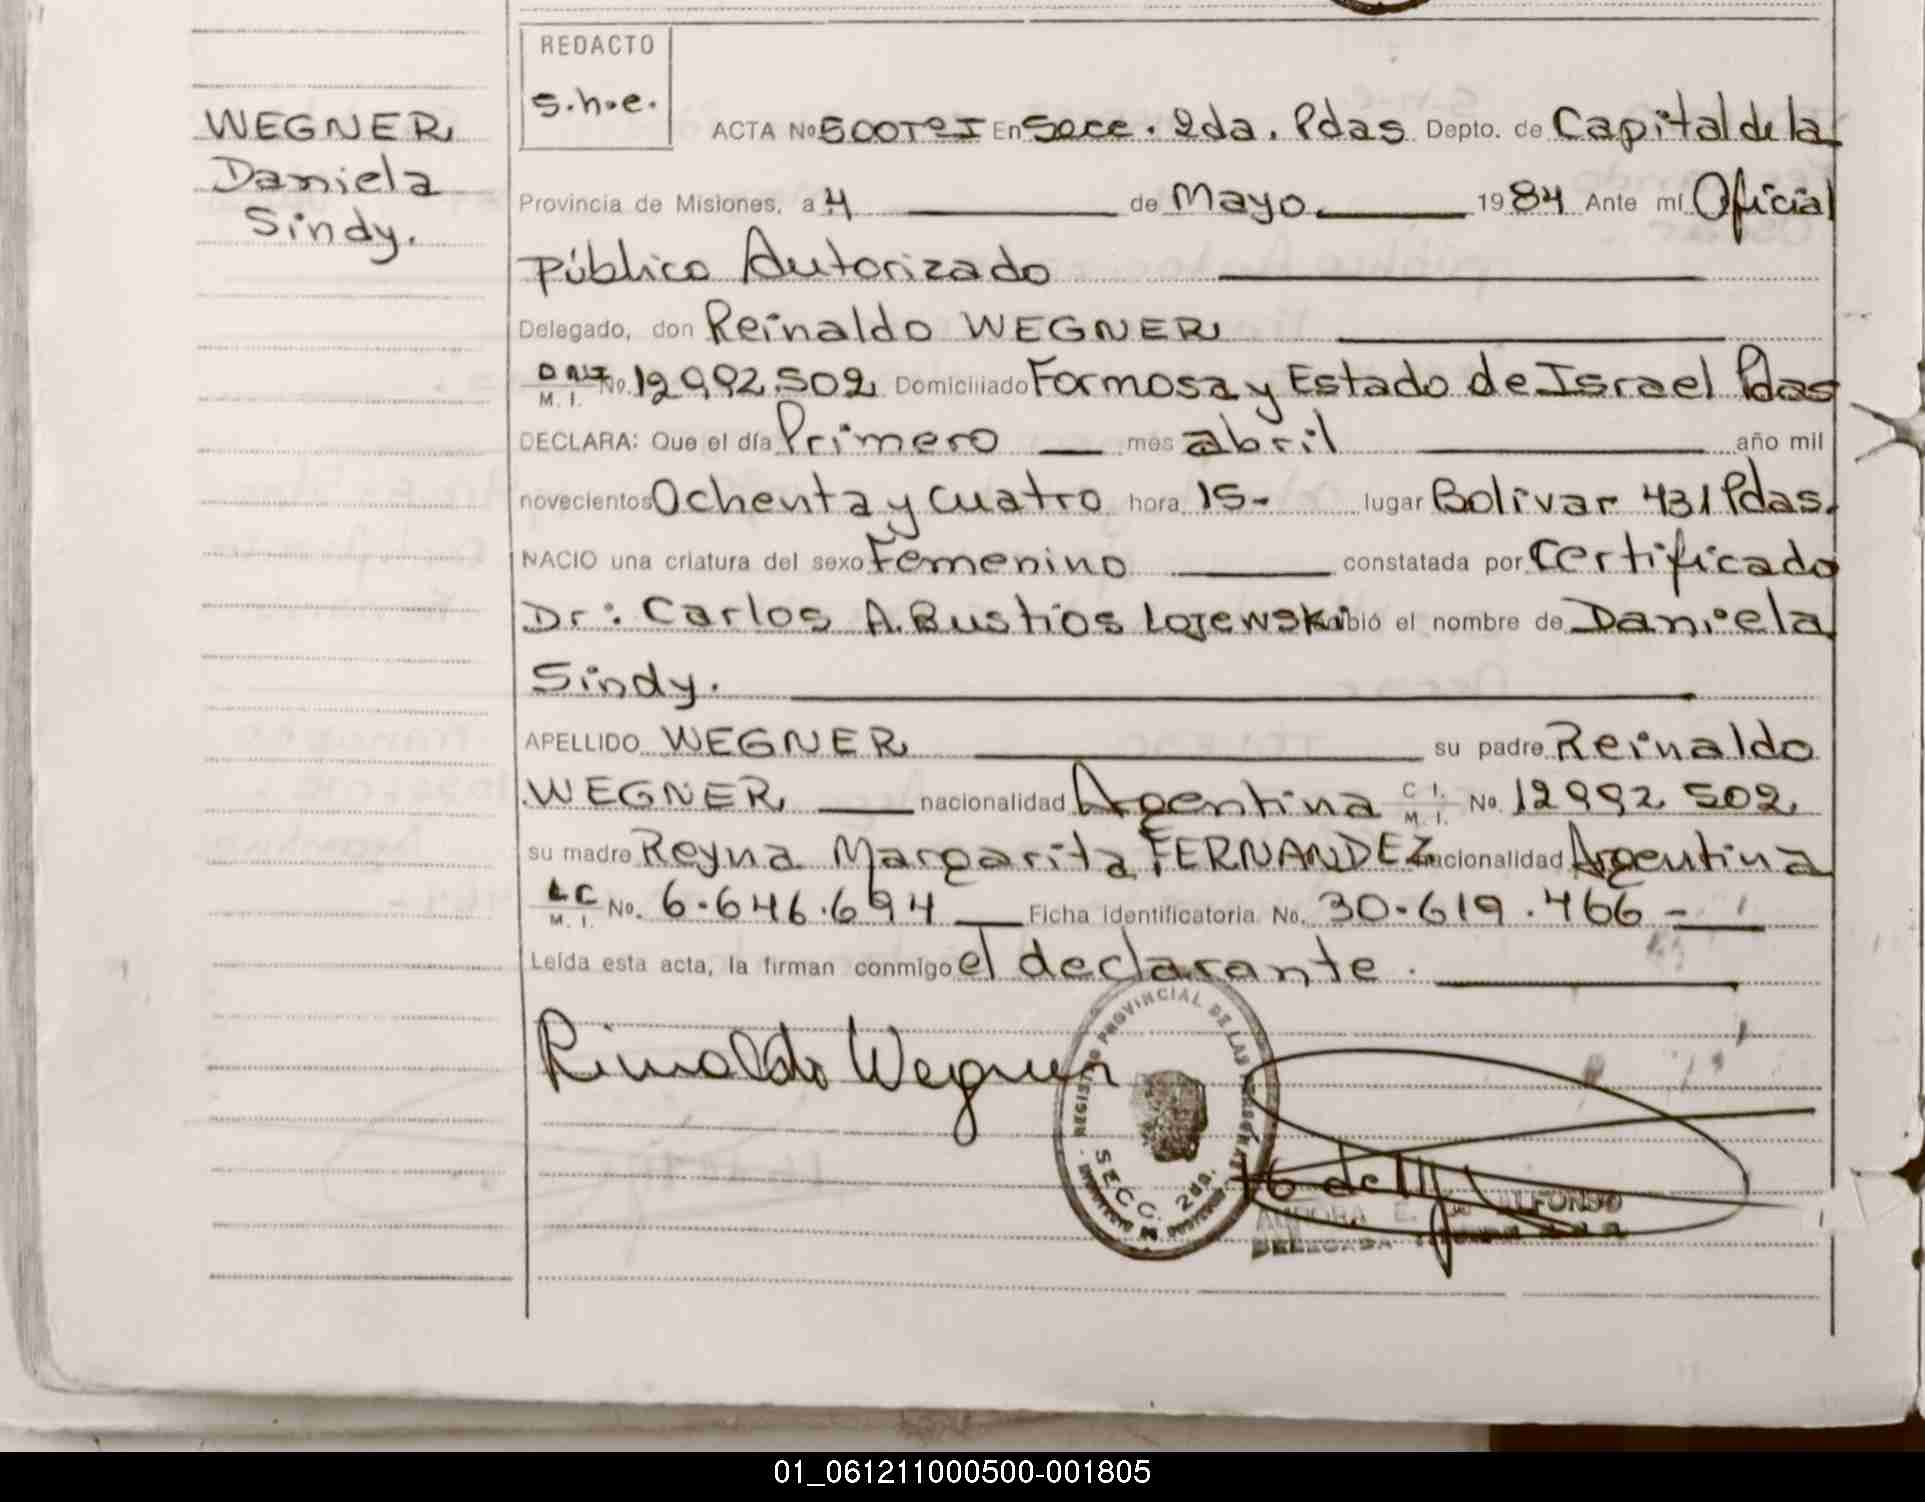 REDACTO
s.h.e.
WEGNER
Daniela
Sindy.
ACTA No 500 Tº I En Secc. 2da. Pdas Depto. de Capital de la
Provincia de Misiones, a 4 de Mayo 1984 Ante mí Oficial
Público Autorizado
Delegado, don Reinaldo WEGNER
DNI M. I. No. 12992.502 Domiciliado Formosa y Estado de Israel Pdas
DECLARA: Que el día Primero mes abril año mil
novecientos Ochenta y cuatro hora 15- lugar Bolivar 431 Pdas.
NACIO una criatura del sexo Femenino constatada por Certificado
Dr: Carlos A. Bustios Lojewski bió el nombre de Daniela
Sindy.
APELLIDO WEGNER su padre Reinaldo
WEGNER nacionalidad Argentina C. I. M. I. No 12992 502
su madre Reyna Margarita FERNANDEZ nacionalidad Argentina
LC M. I. No. 6.646.694 Ficha identificatoria No. 30.619.466-
Leída esta acta, la firman conmigo el declarante.
Rinaldo Wegner
REGISTRO PROVINCIAL DE LAS PERSONAS
SECC. 2da.
AURORA E. ALFONSO
DELEGADA
01_061211000500-001805